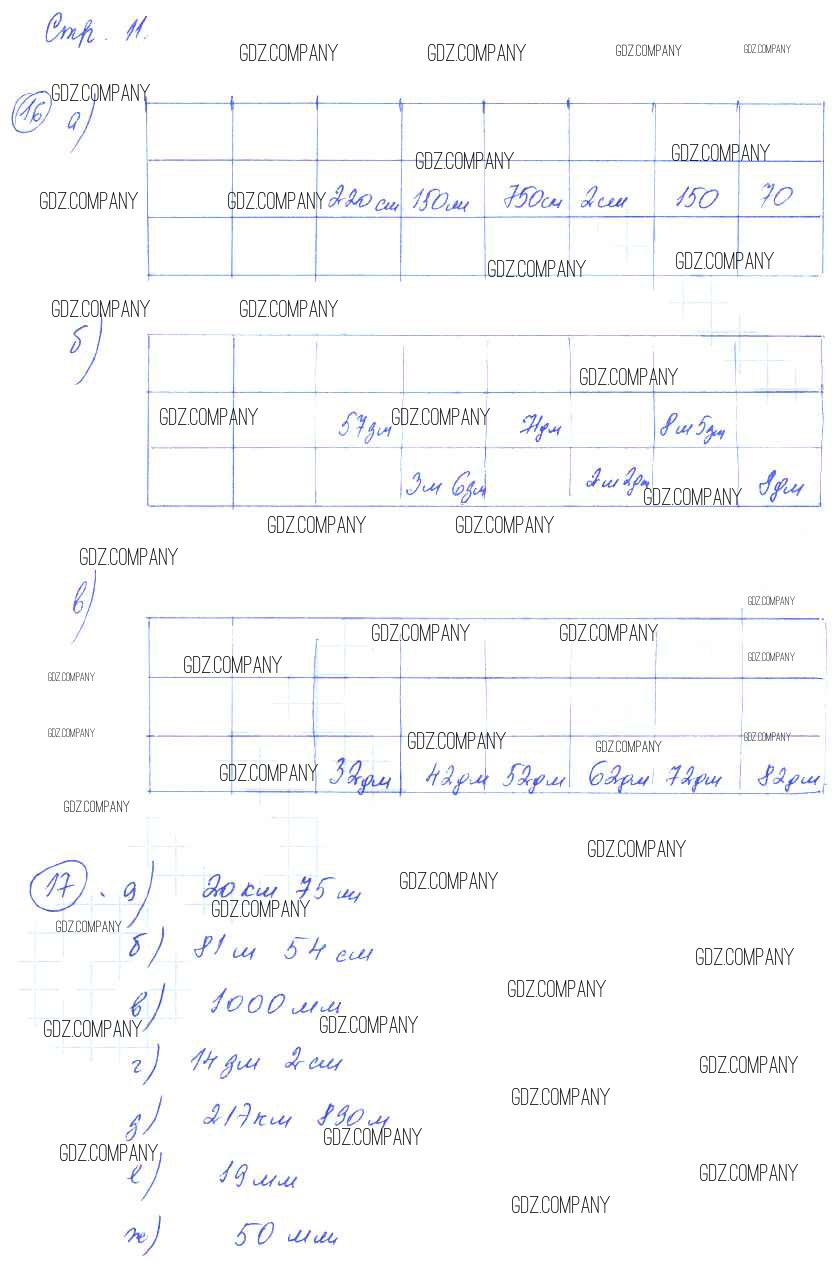 Стр. 11.
GDZ.COMPANY GDZ.COMPANY GDZ.COMPANY GDZ.COMPANY
GDZ.COMPANY
16 а)
GDZ.COMPANY GDZ.COMPANY
GDZ.COMPANY GDZ.COMPANY 220 см 150 м 750 см 2 см 150 70
GDZ.COMPANY GDZ.COMPANY
GDZ.COMPANY GDZ.COMPANY
б)
GDZ.COMPANY
GDZ.COMPANY 57 дм GDZ.COMPANY 71 дм 8 м 5 дм
3 м 6 дм 2 м 2 дм GDZ.COMPANY 8 дм
GDZ.COMPANY GDZ.COMPANY
GDZ.COMPANY
в) GDZ.COMPANY
GDZ.COMPANY GDZ.COMPANY
GDZ.COMPANY GDZ.COMPANY
GDZ.COMPANY
GDZ.COMPANY GDZ.COMPANY GDZ.COMPANY GDZ.COMPANY
GDZ.COMPANY 32 дм 42 дм 52 дм 62 дм 72 дм 82 дм
GDZ.COMPANY
GDZ.COMPANY
17. а) 20 км 75 м GDZ.COMPANY
GDZ.COMPANY
GDZ.COMPANY
б) 81 м 54 см GDZ.COMPANY
GDZ.COMPANY
в) 1000 мм
GDZ.COMPANY GDZ.COMPANY
г) 14 дм 2 см GDZ.COMPANY
GDZ.COMPANY
д) 217 км 890 м
GDZ.COMPANY
GDZ.COMPANY
е) 19 мм GDZ.COMPANY
GDZ.COMPANY
ж) 50 мм